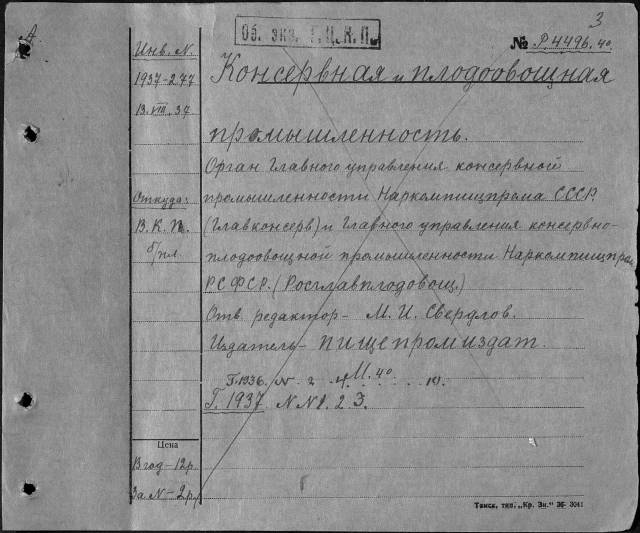 3
Об. экз. Г.Ц.К.П.
№ Р.4496.40.
Инв. N.
1937-277
13.VIII.37
Откуда:
В.К.П.
б/пл.
Консервная и плодоовощная
промышленность.
Орган Главного управления консервной
промышленности Наркомпищпрома СССР.
(Главконсерв) и Главного управления консервно-
плодоовощной промышленности Наркомпищпрома
РСФСР. (Росглавплодоовощ.)
Отв. редактор - М. И. Свердлов.
Издатель - Пищепромиздат.
Г. 1936. N. 2
Г. 1937 N N 1. 2. 3.
Цена
В год - 12 р.
За N - 2 р.
Томск, тип. „Кр. Зн." 36- 3041